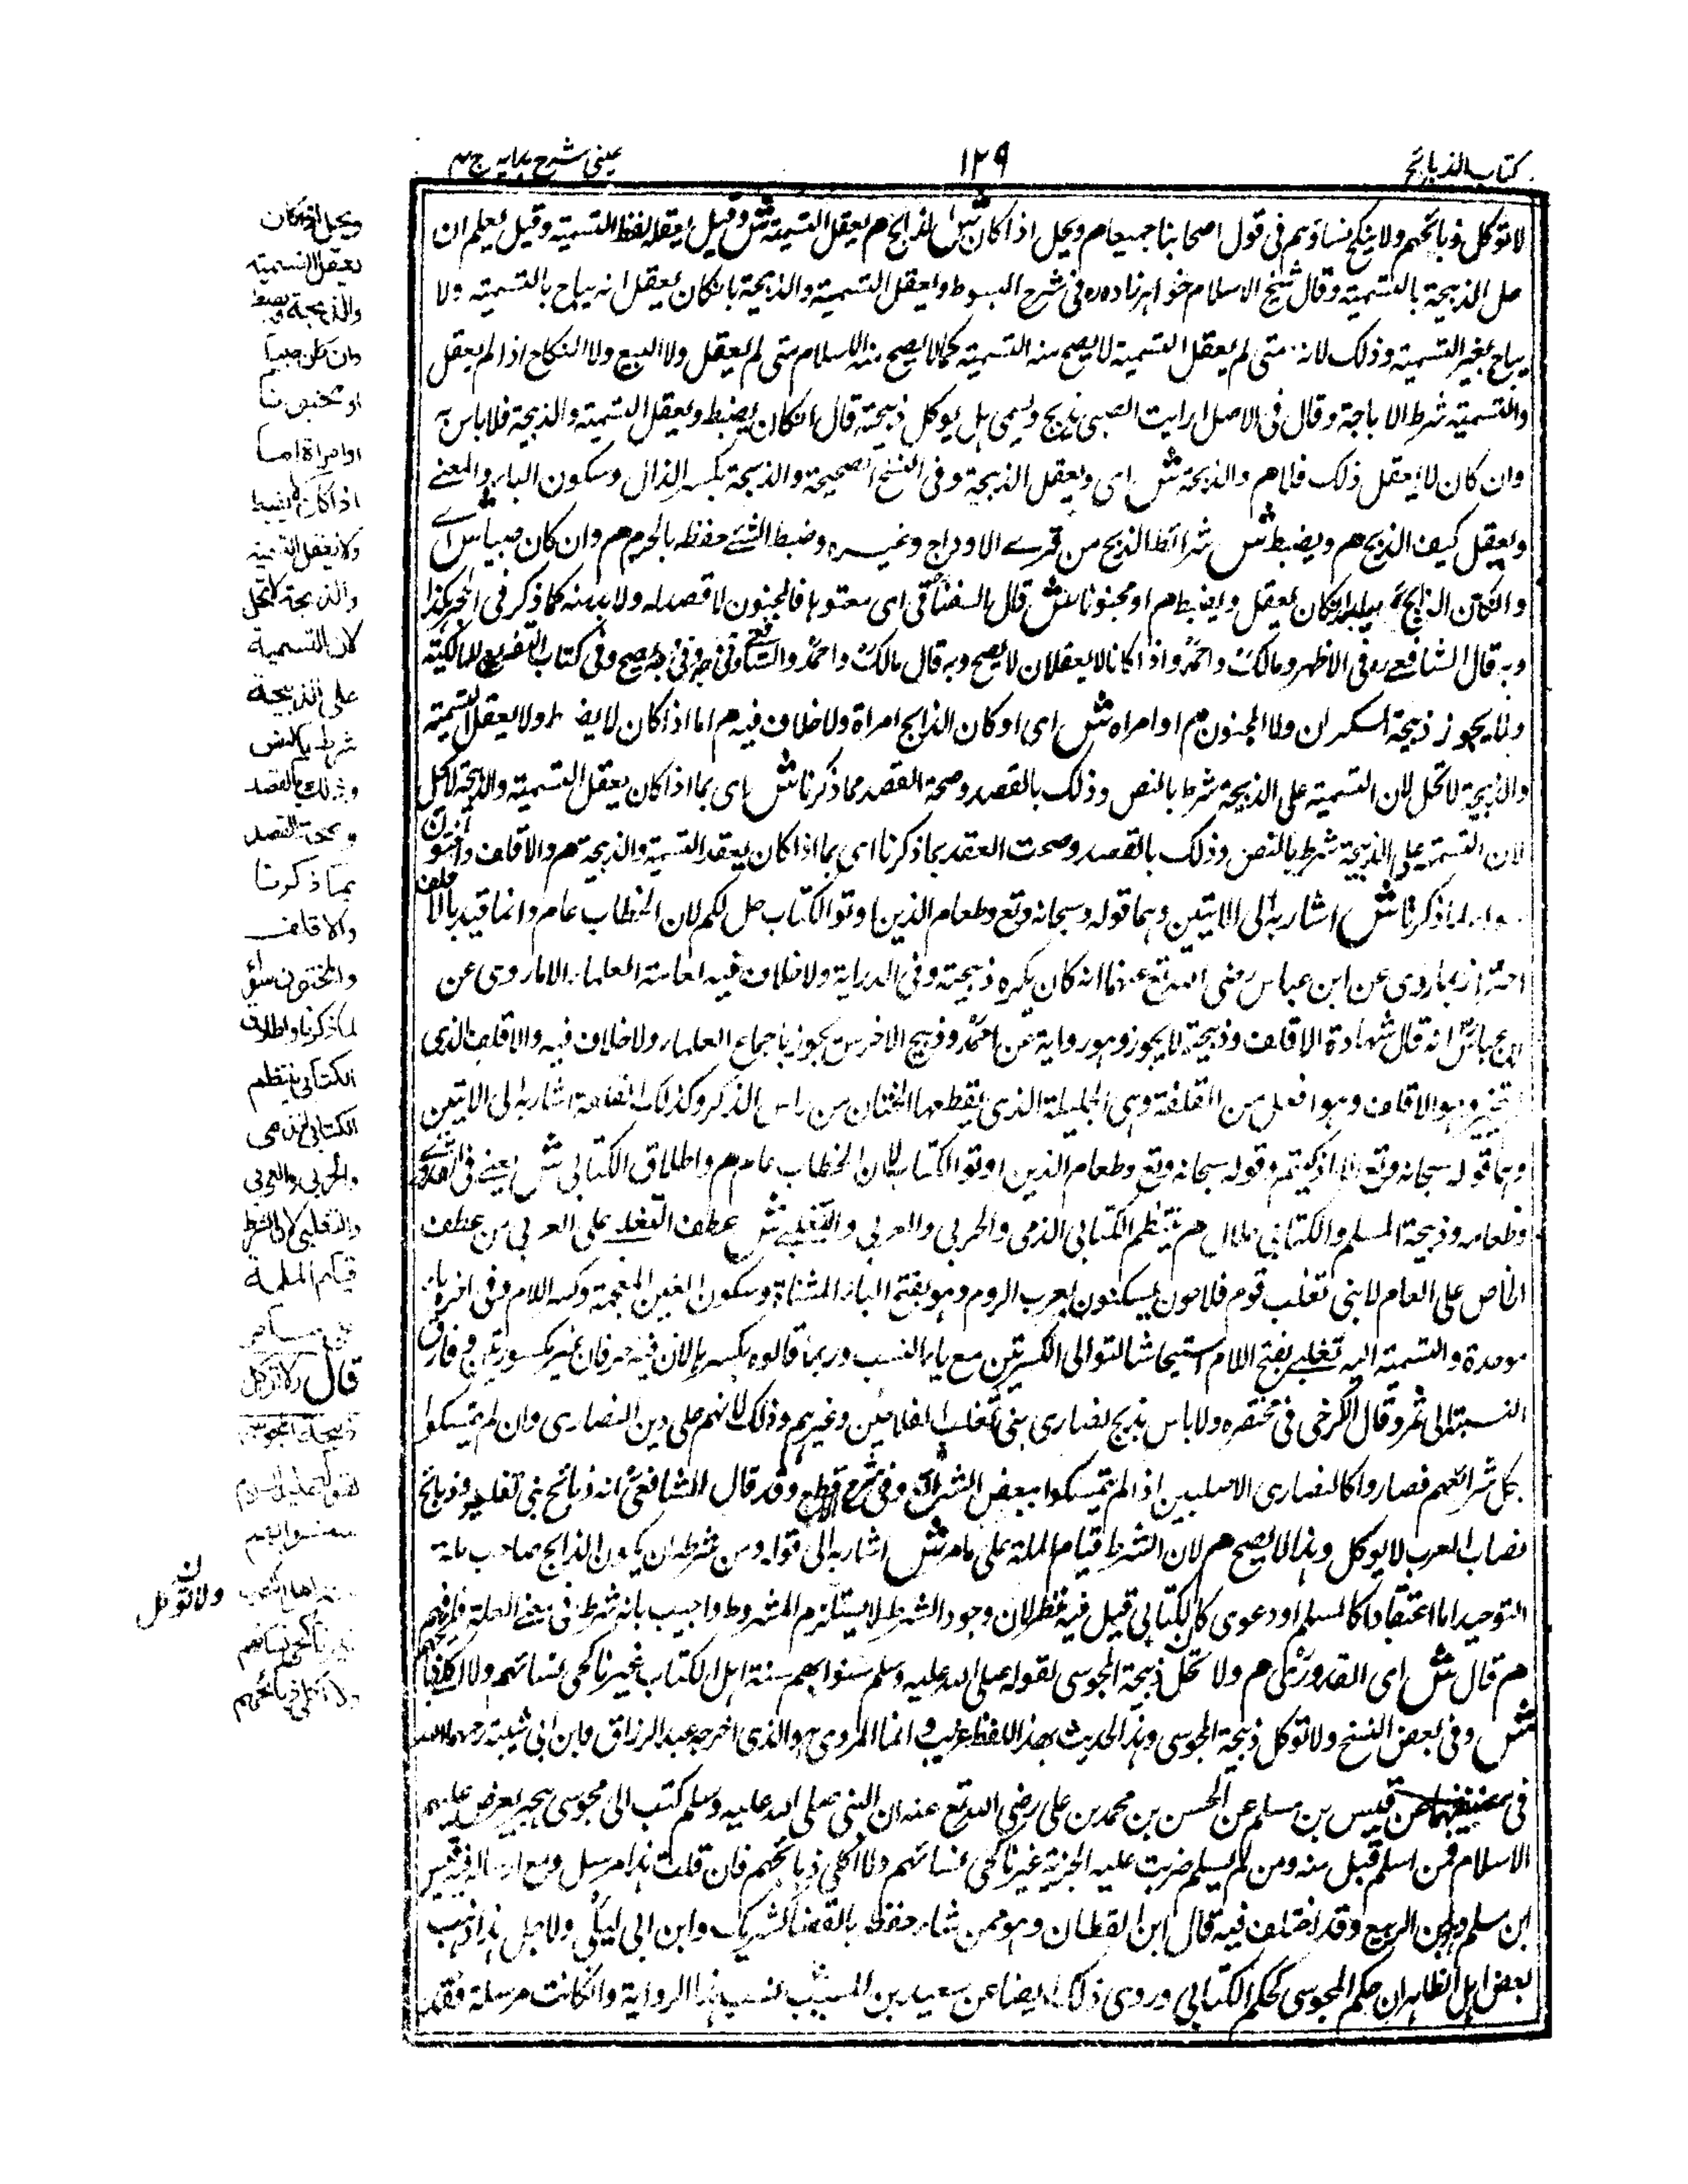 كتاب الذبائح
١٢٩
عيني شرح هدايه ج ٤
لا توكل ذبائحهم ولا ينكح نساؤهم في قول اصحابنا جميعا م ويحل اذا كان ش الذابح م يعقل التسمية ش وقيل يعقل لفظ التسمية وقيل يعلم ان
حل الذبيحة بالتسمية وقال شيخ الاسلام خواهرزاده ره في شرح المبسوط ويعقل التسمية والذبيحة بان كان يعقل انه يباح بالتسمية ولا
يباح بغير التسمية وذلك لانه متى لم يعقل التسمية لا يصح منه التسمية كما لا يصح منه الاسلام متى لم يعقل ولا البيع ولا النكاح اذا لم يعقل
والتسمية شرط الاباحة وقال في الاصل ارايت الصبي يذبح ويسمي هل يوكل ذبيحته قال انكان يضبط ويعقل التسمية والذبيحة فلا باس به
وان كان لا يعقل ذلك فلا م والذبيحة ش اي ويعقل الذبيحة وفي النسخ الصحيحة والذبحة بكسر الذال وسكون الباء والمعنے
ويعقل كيف الذبح م ويضبط ش شرائط الذبح من فرے الاوداج وغيره وضبط الشئے حفظه بالحزم م وان كان صبيا ش اے
وان كان الذابح صبيا كان يعقل ويضبط م او مجنونا ش قال السغناقي اي معتوها فالمجنون لا قصد له ولا بد منه كما ذكر في
وبه قال الشافعے ره في الاظهر ومالك واحمد واذا كانا لا يعقلان لا يصح وبه قال مالك واحمد والشافعي في وجه وفي وجه يصح وفي كتاب التفريع للمالكية
ولا يجوز ذبيحة السكران ولا المجنون م او امراه ش اي او كان الذابح امراة ولا خلاف فيه م اما اذا كان لا يضبط ولا يعقل التسمية
والذبيحة لا تحل لان التسمية على الذبيحة شرط بالنص وذلك بالقصد وصحة القصد مما ذكرنا ش اي بما اذا كان يعقل التسمية والذبيحة لا تحل
لان التسمية على الذبيحة شرط بالنص وذلك بالقصد وصحت العقد بما ذكرنا اي بما اذا كان يعقد التسمية والذبيحة م والاقلف والمختون
سواء لما ذكرنا ش اشار به الى الايتين وهما قوله وسبحانه وتع وطعام الذين اوتوا الكتاب حل لكم لان الخطاب عام وانما قيد بالاقلف
احترازا بما روى عن ابن عباس رضي الله تع عنهما انه كان يكره ذبيحته وفي الدراية ولا خلاف فيه لعامة العلماء الا ما روى عن
ابن عباس انه قال شهادة الاقلف وذبيحته لا يجوز وهو رواية عن احمد وذبح الاخرس يجوز باجماع العلماء ولا خلاف فيه والاقلف الذي
لم يختن وهو الاقلف وهو افعل من القلفة وهي الجليدة الذي يقطعها الختان من راس الذكر وكذلك اشار به الى الايتين
وهما قوله سبحانه وتع الا ما ذكيتم وقوله سبحانه وتع وطعام الذين اوتوا الكتاب لان الخطاب عام م واطلاق الكتابي ش يعنے في
وطعامه وذبيحة المسلم والكتابي حلال م ينتظم الكتابي الذمي والحربي والعربي والتغلبے ش عطف التغلبے على العربي من عطف
الخاص على العام لا بني تغلب قوم فلاحون يسكنون بعرب الروم وهو بفتح الباء المثناة وسكون الغين المعجمة وكسر اللام وفي اخره باء
موحدة والتسمية اليه تغلبے بفتح اللام استيحاشا لتوالي الكسرتين مع ياء النسب وربما قالوه بكسرها لان فيه حرفان غير مكسورتين وفارق
النسبة الى نمر وقال الكرخي في مختصره ولا باس بذبح نصارى بني تغلب الفلاحين وغيرهم وذلك لانهم على دين النصارى وان لم يتمسكوا
بكل شرائعهم فصاروا كالنصارى الاصليين اذا لم يتمسكوا ببعض الشرائع وفي شرح الاقطع وقد قال الشافعي انه ذبائح بني تغلب وذبائح
نصارى العرب لا يوكل وهذا لا يصح م لان الشرط قيام الملة على ما مر ش اشار به الى قوله ومن شرطه ان يكون الذابح صاحب ملة
التوحيد اما اعتقادا كالمسلم او دعوى كالكتابي قيل فيه نظر لان وجود الشرط لا يستلزم المشروط واجيب بانه شرط في معنے العلة فافهم
م قال ش اي القدوري م ولا تحل ذبيحة المجوسي لقوله صلى الله عليه وسلم سنوا بهم سنة اهل الكتاب غير ناكحي نسائهم ولا اكلي ذبائحهم
ش وفي بعض النسخ ولا توكل ذبيحة المجوسي وهذا الحديث بهذا اللفظ غريب وانما المروي هو الذي اخرجه عبد الرزاق وابن ابي شيبة رحمهما الله
في مصنفيهما عن قيس بن مسلم عن الحسن بن محمد بن علي رضي الله تع عنه ان النبي صلى الله عليه وسلم كتب الى مجوسي هجر يعرض عليهم
الاسلام فمن اسلم قبل منه ومن لم يسلم ضربت عليه الجزية غير ناكحي نسائهم ولا اكلي ذبائحهم فان قلت هذا مرسل ومع ارساله فيه قيس
ابن مسلم وهو ابن الربيع وقد اختلف فيه قال ابن القطان وهو ممن ساء حفظه بالقضاء كشريك وابن ابي ليلى ولاجل هذا ذهب
بعض اهل الظاهر ان حكم المجوسي كحكم الكتابي وروى ذلك ايضا عن سعيد بن المسيب هذا الرواية وانكانت مرسلة فقد
ويحل اذا كان
يعقل التسمية
والذبيحة ويضبط
وان كان صبيا
او مجنونا
او امراة اما
اذا كان لا يضبط
ولا يعقل التسمية
والذبيحة لا تحل
لان التسمية
على الذبيحة
شرط بالنص
وذلك بالقصد
وصحة القصد
بما ذكرنا
والاقلف
والمختون سواء
لما ذكرنا واطلاق
الكتابي ينتظم
الكتابي الذمي
والحربي والعربي
والتغلبي لان الشرط
قيام الملة
على ما مر
قال ولا توكل
ذبيحة المجوسي
لقوله عليه السلام
سنوا بهم
سنة اهل الكتاب
غير ناكحي نسائهم
ولا اكلي ذبائحهم
ن
ولا توكل